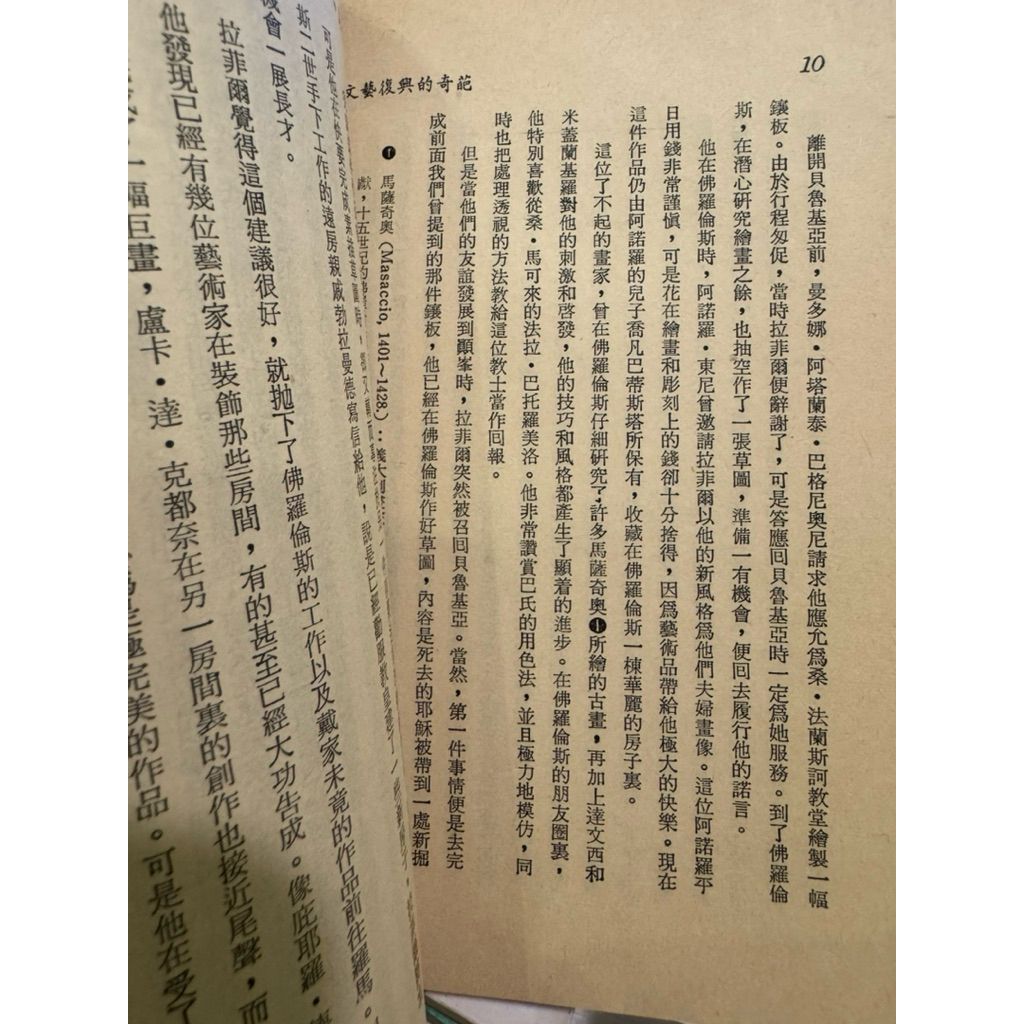 10
文藝復興的奇葩
離開貝魯基亞前，曼多娜・阿塔蘭泰・巴格尼奧尼請求他應允為桑・法蘭斯訶教堂繪製一幅
鑲板。由於行程匆促，當時拉菲爾便辭謝了，可是答應回貝魯基亞時一定為她服務。到了佛羅倫
斯，在潛心研究繪畫之餘，也抽空作了一張草圖，準備一有機會，便回去履行他的諾言。
他在佛羅倫斯時，阿諾羅・東尼曾邀請拉菲爾以他的新風格為他們夫婦畫像。這位阿諾羅平
日用錢非常謹慎，可是花在繪畫和彫刻上的錢卻十分捨得，因為藝術品帶給他極大的快樂。現在
這件作品仍由阿諾羅的兒子喬凡巴蒂斯塔所保有，收藏在佛羅倫斯一棟華麗的房子裏。
這位了不起的畫家，曾在佛羅倫斯仔細研究了許多馬薩奇奧❶所繪的古畫，再加上達文西和
米蓋蘭基羅對他的刺激和啓發，他的技巧和風格都產生了顯着的進步。在佛羅倫斯的朋友圈裏，
他特別喜歡從桑・馬可來的法拉・巴托羅美洛。他非常讚賞巴氏的用色法，並且極力地模仿，同
時也把處理透視的方法教給這位教士當作回報。
但是當他們的友誼發展到顚峯時，拉菲爾突然被召回貝魯基亞。當然，第一件事情便是去完
成前面我們曾提到的那件鑲板，他已經在佛羅倫斯作好草圖，內容是死去的耶穌被帶到一處新掘
❶ 馬薩奇奧（Masaccio, 1401～1428.）：義大利
獻，十五世紀的
可是他在快要完成
斯二世手下工作的遠房親戚勃拉曼德寫信給他，說是已經
機會一展長才。
拉菲爾覺得這個建議很好，就拋下了佛羅倫斯的工作以及戴家未竟的作品前往羅馬。
他發現已經有幾位藝術家在裝飾那些房間，有的甚至已經大功告成。像庇耶羅・
一幅巨畫，盧卡・達・克都奈在另一房間裏的創作也接近尾聲，而
極完美的作品。可是他在受了